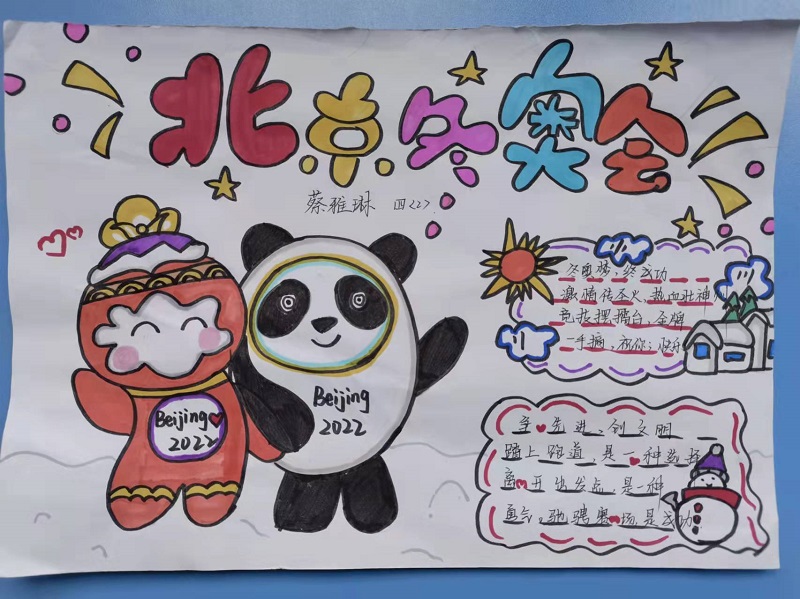 北京冬奥会
蔡雅琳 四<2>
Beijing
2022
Beijing
2022
冬奥梦，终成功
激情传圣火，热血壮神州
竞技摆擂台，金牌
一手摘，祝你：快乐
争先进，创文明
踏上跑道，是一种选择
离开出发点，是一种
勇气，驰骋赛场是成功